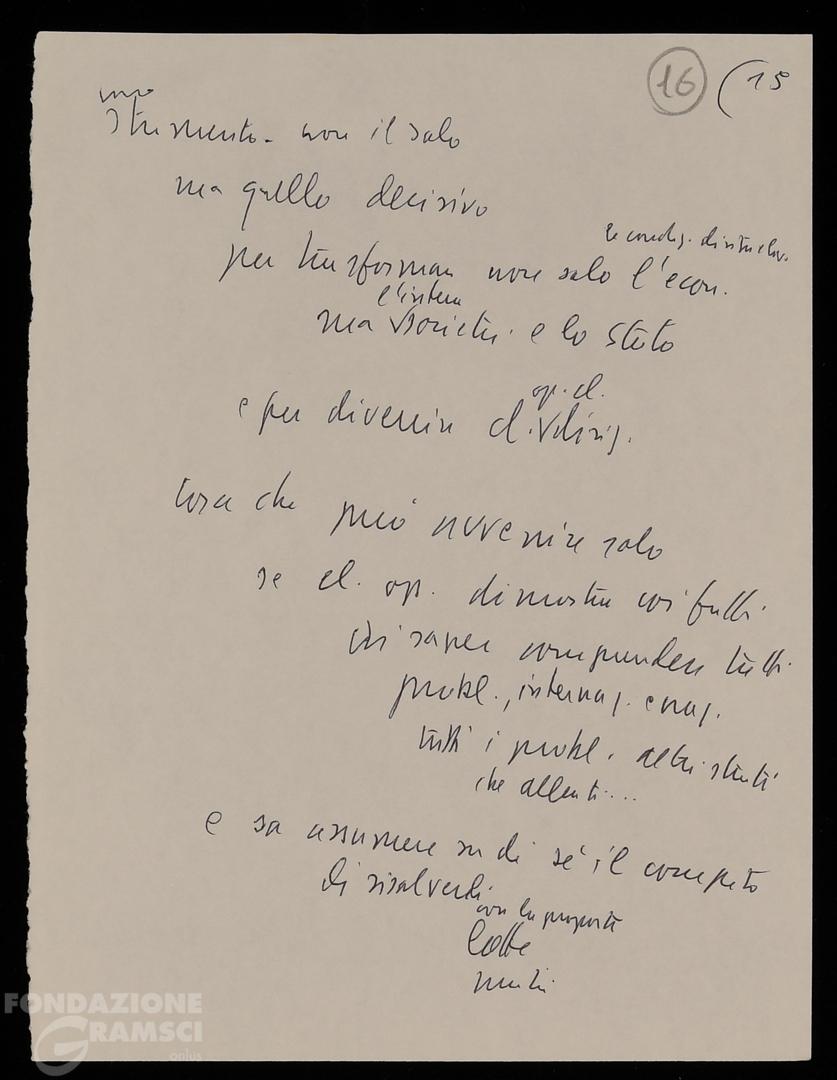 16 (15
uno
strumento - non il solo
ma quello decisivo
le condiz. di vita e lav.
per trasformare non solo l'econ.
l'intera
ma V società e lo Stato
op. cl.
e per divenire cl. V dirig.
Cosa che può avvenire solo
se cl. op. dimostra coi fatti
di saper comprendere tutti
probl., internaz. e naz.
tutti i probl. altri strati
che alleati...
e sa assumere su di sé il compito
di risolverli
con la proposta
lotte
FONDAZIONE
GRAMSCI
onlus